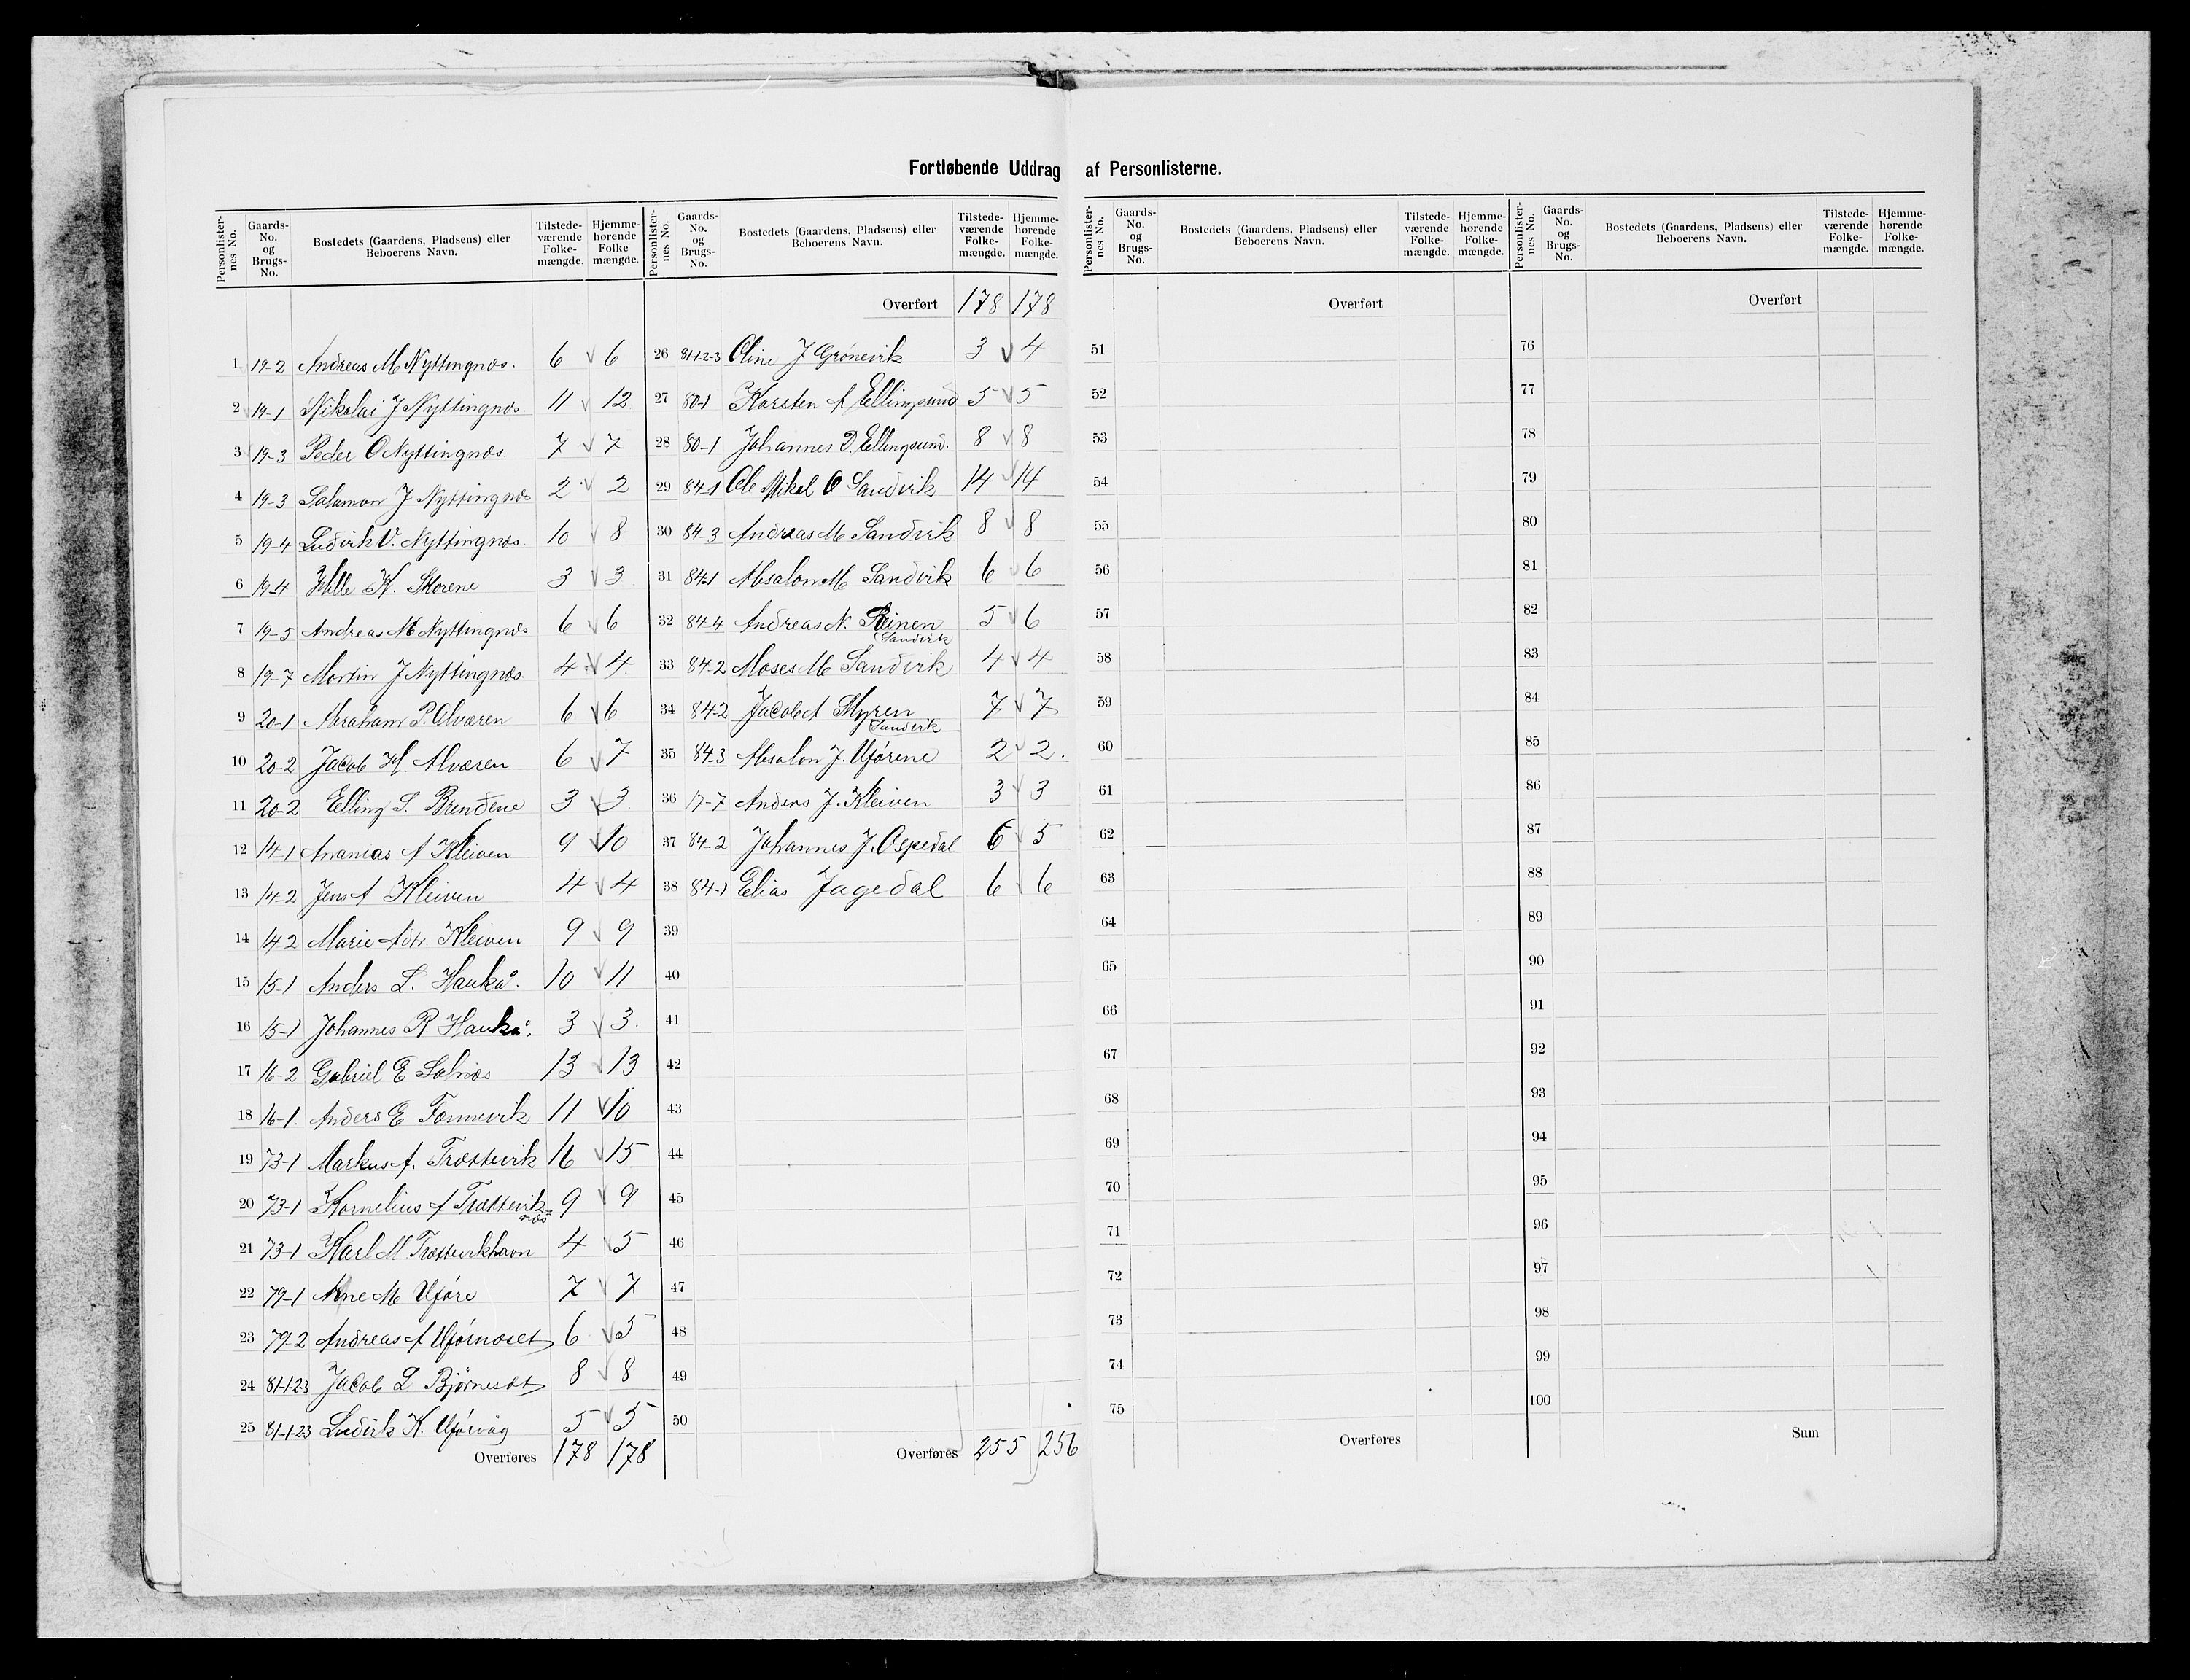 Fortløbende Uddrag af Personlisterne.
Personlister-nes No. Gaards-No. og Brugs-No. Bostedets (Gaardens, Pladsens) eller Beboerens Navn. Tilstede-værende Folke-mængde. Hjemme-hørende Folke mængde.
1 19-2 Andreas M Nyttingnæs. 6 6
2 19-1 Nikolai J Nyttingnæs 11 12
3 19-3 Peder O Nyttingnæs. 7 7
4 19-3 Salamon J Nyttingnæs 2 2
5 19-4 Ludvik V. Nyttingnæs 10 8
6 19-4 K. Skorene 3 3
7 19-5 Andreas M Nyttingnæs 6 6
8 19-7 Martin J Nyttingnæs. 4 4
9 20-1 Abraham P. Alværen 6 6
10 20-2 Jacob H. Alværen 6 7
11 20-2 Elling S. Brendene 3 3
12 14-1 Ananias A Kleiven 9 10
13 14-2 Jens A Kleiven 4 4
14 14-2 Marie Adtr. Kleiven 9 9
15 15-1 Anders L. Haukå. 10 11
16 15-1 Johannes R Haukå. 3 3.
17 16-2 Gabriel E Solnæs 13 13
18 16-1. Anders E Fonnevik 11 10
19 73-1 Markus A. Trættevik 16 15
20 73-1 Kornelius A Trættevik=
næs 9 9
21 73-1 Karl M Trættevikhavn 4 5
22 79-1 Arne M Uføre 7 7
23 79-2 Andreas A Uførnæset 6 5
24 81-1-2-3 Jacob L Bjørneset 8 8
25 81-1-2-3 Ludvik K. Uførvåg 5 5
Overføres 178 178
Personlister-nes No. Gaards-No. og Brugs-No. Bostedets (Gaardens, Pladsens) eller Beboerens Navn. Tilstede-værende Folke-mængde. Hjemme-hørende Folke-mængde.
Overført 178 178
26 81-1-2-3 Oline J Grønevik 3 4
27 80-1 Karsten A Ellingsund 5 5
28 80-1 Johannes D. Ellingsund. 8 8
29 84-1 Ole Mikal O Sandvik 14 14
30 84-3 Andreas M Sandvik 8 8
31 84-1 Absalon M Sandvik 6 6
32 84-4 Andreas N. Steinen 5 6
Sandvik
33 84-2 Moses M Sandvik 4 4
34 84-2 Jacob A Myren 7 7
Sandvik
35 84-3 Absalon J. Uførene 2 2.
36 17-7 Anders J. Kleiven 3 3
37 84-2 Johannes J. Ospedal 6 5
38 84-1 Elias Fagedal 6 6
39
40
41
42
43
44
45
46
47
48
49
50
Overføres 255 256
Personlister-nes No. Gaards-No. og Brugs-No. Bostedets (Gaardens, Pladsens) eller Beboerens Navn. Tilstede-værende Folke-mængde. Hjemme-hørende Folke-mængde.
Overført
51
52
53
54
55
56
57
58
59
60
61
62
63
64
65
66
67
68
69
70
71
72
73
74
75
Overføres
Personlister-nes No. Gaards-No. og Brugs-No. Bostedets (Gaardens, Pladsens) eller Beboerens Navn. Tilstede-værende Folke-mængde. Hjemme-hørende Folke-mængde.
Overført
76
77
78
79
80
81
82
83
84
85
86
87
88
89
90
91
92
93
94
95
96
97
98
99
100
Sum